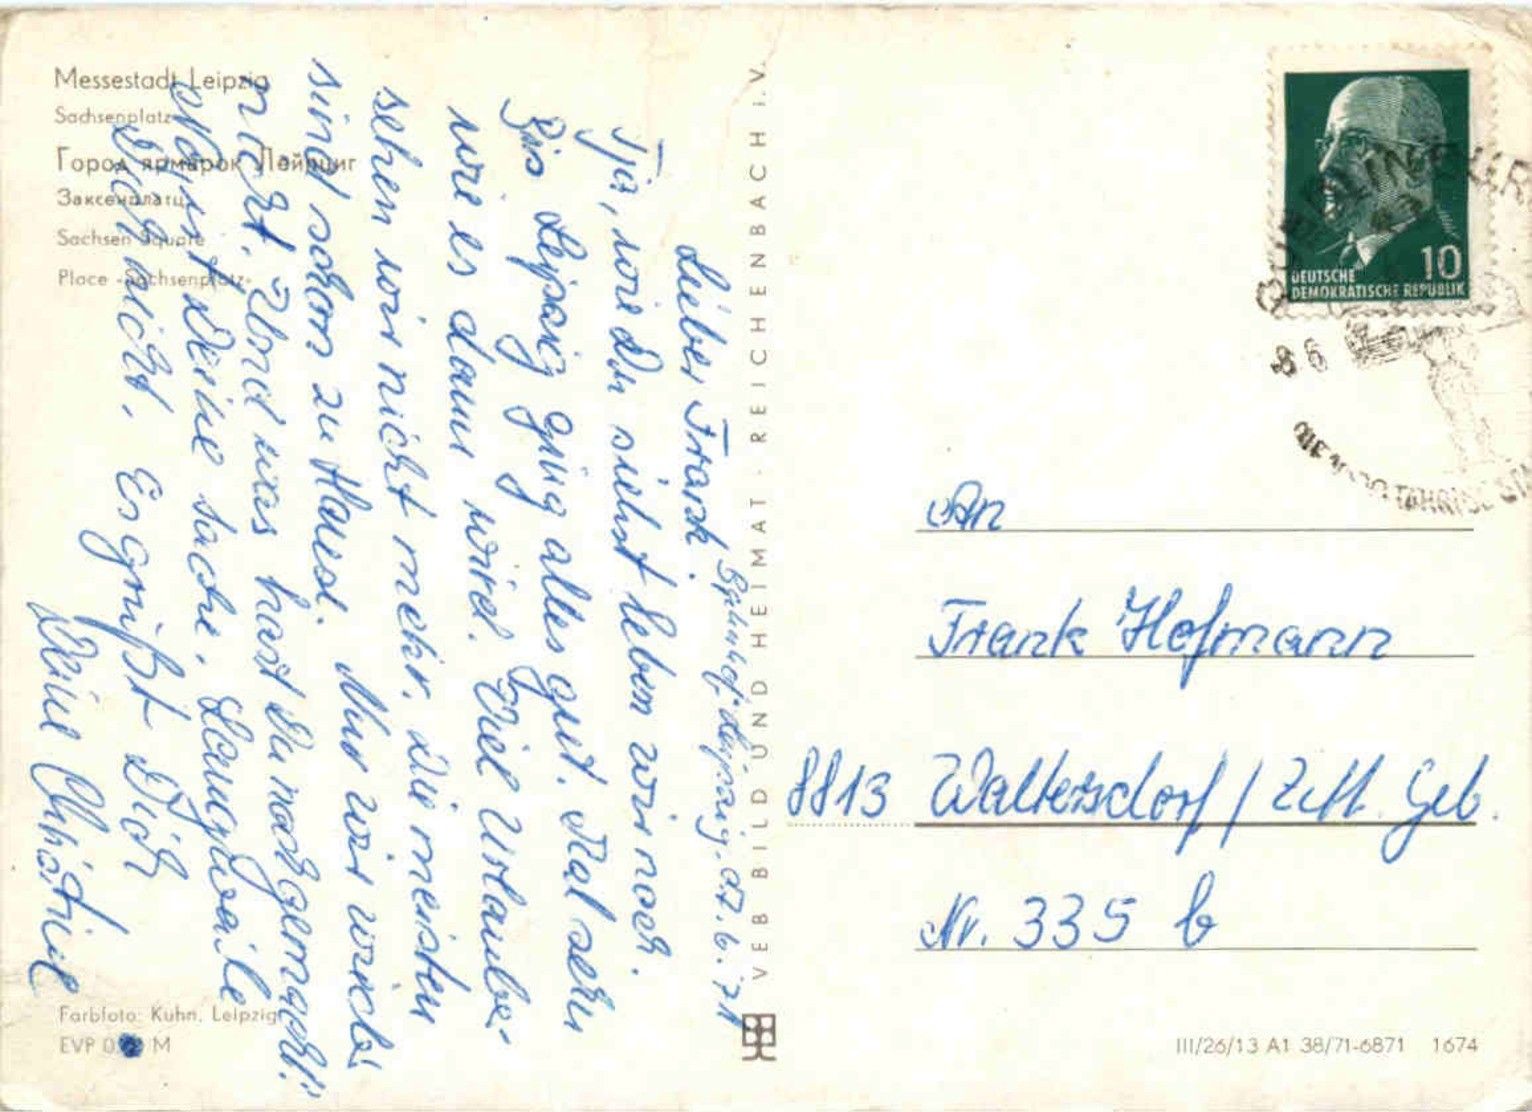 Messestadt Leipzig
Sachsenplatz
Город ярмарок Лейпциг
Заксенплатц
Sachsen Square
Place «Sachsenplatz»
Bahnhof Leipzig, 07.6.71
Lieber Frank.
Tja, wie Du siehst leben wir noch.
Bis Leipzig ging alles gut. Mal sehn
wie es dann wird. Viel Urlauber
sehen wir nicht mehr. Die meisten
sind schon zu Hause. Nur wir
nicht. Und was hast Du
Deine Sache. Langweile
Dich nicht. Es grüßt Dich
Deine Christine
Farbfoto: Kühn, Leipzig
EVP M
VEB BILD UND HEIMAT · REICHENBACH i. V.
10
DEUTSCHE
DEMOKRATISCHE REPUBLIK
QUEDLINBURG
8 6
An
Frank Hofmann
8813 Waltersdorf / Zitt. Geb.
Nr. 335 b
III/26/13 A1 38/71-6871 1674